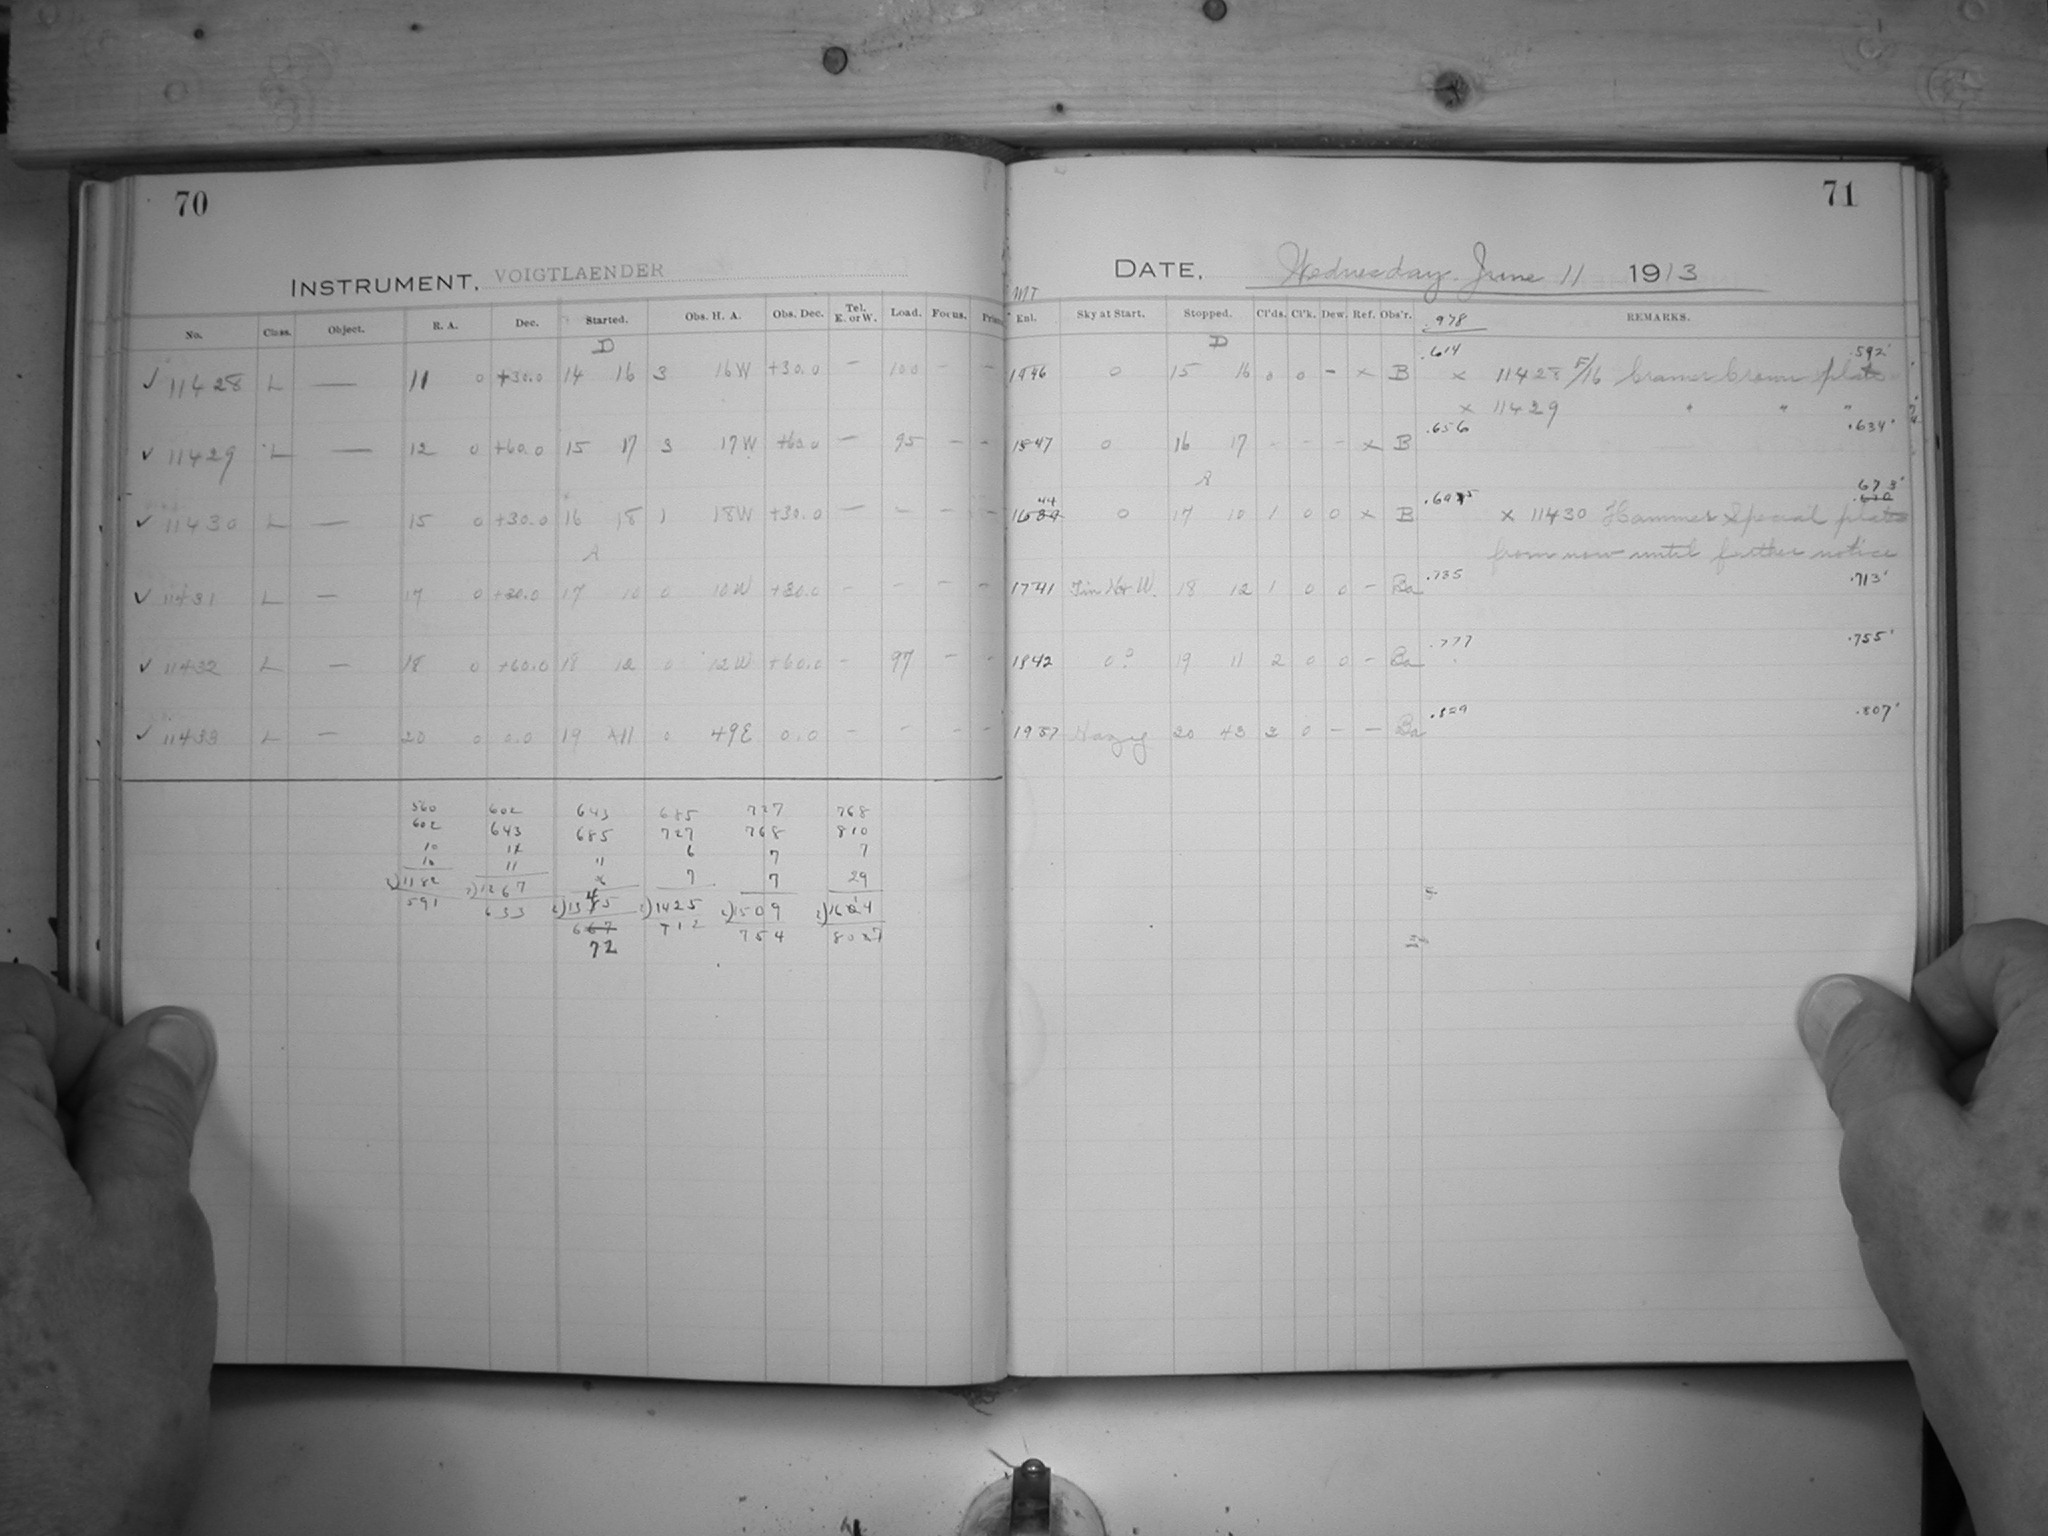 70
INSTRUMENT, VOIGTLAENDER
No. Class. Object. R. A. Dec. Started. Obs. H. A. Obs. Dec. Tel. E. or W. Load. Focus.
D
✓ 11428 L — 11 0 +30.0 14 16 3 16W +30.0 — 100 — —
✓ 11429 L — 12 0 +60.0 15 17 3 17W +60.0 — 95 — —
✓ 11430 L — 15 0 +30.0 16 18 1 18W +30.0 — — — —
✓ 11431 L — 17 0 +30.0 17 10 0 10W +30.0 — — — —
✓ 11432 L — 18 0 +60.0 18 12 0 12W +60.0 — 97 — —
✓ 11433 L — 20 0 0.0 19 11 0 49E 0.0 — — — —
560 602 643 685 727 768
602 643 685 727 768 810
10 11 11 6 7 7
10 11 7 7 29
2)1182 2)1267 2)1345 2)1425 2)1509 2)1614
591 633 667 712 754 807
72
71
DATE, Wednesday June 11 1913
MT
Enl. Sky at Start. Stopped. Cl'ds. Cl'k. Dew. Ref. Obs'r. .978 REMARKS.
D
.614 .592'
1846 0 15 16 0 0 — x B x 11428 F/16 Cramer Crown plate
x 11429 " " "
.656 .634'
1847 0 16 17 — — — x B
673'
44 .6975
1639 0 17 10 1 0 0 x B x 11430 Hammer Special plate
from now until further notice
1741 18 12 1 0 0 — Ba .735 .713'
1842 0? 19 11 2 0 0 — Ba .777 .755'
1937 Hazy 20 43 3 0 — — Ba .829 .807'